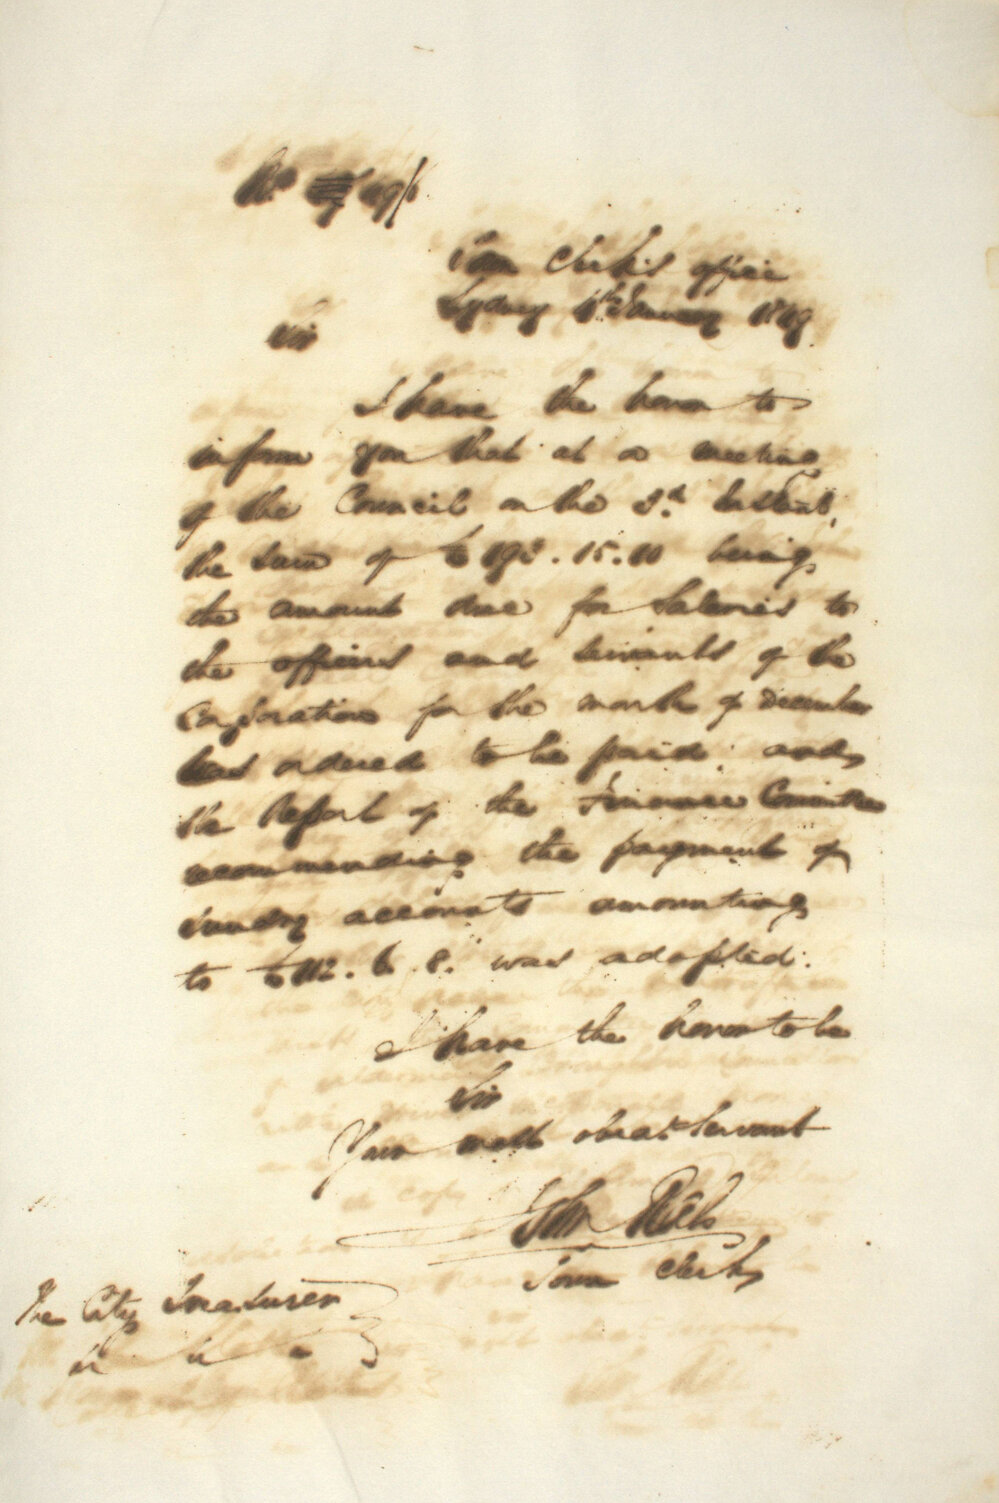 No 49/1
Town Clerk's office
Sydney 4th January 1849
Sir
I have the honor to
inform you that at a meeting
of the Council on the 3d Instant,
the sum of £ 198.15.10 being
the amount due for Salaries to
the officers and servants of the
Corporation for the month of December
was ordered to be paid: and
the Report of the Finance Committee
recommending the payment of
sundry accounts amounting
to £112.6.8. was adopted.
I have the honor to be
Sir
Your most obedt Servant
John Rich
Town Clerk
The City Treasurer